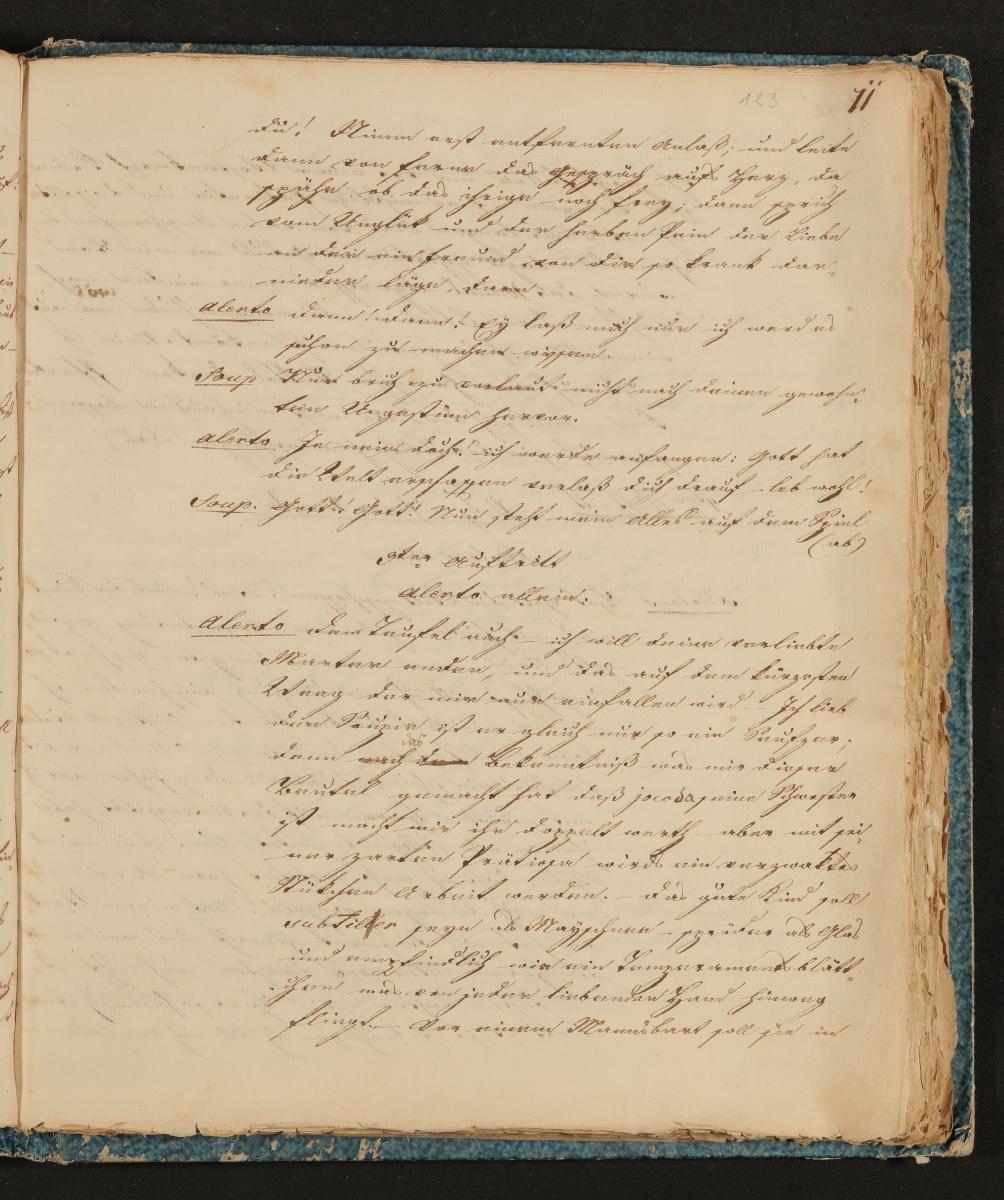 123 11
du! Nimm erst entfernten Anlaß; und leite
dann von ferne das Gespräch aufs Herz, da
spähe ob das ihrige noch frey; dann sprich
vom Unglük und der herben Pein der Liebe
an der ein Freund von dir so krank dar¬
nieder läge, dann
Alerto dann! dann! Ey laß mich nur ich werd es
schon zu machen wyssen.
Soup Nur brich zu vorlaut nicht nach deinem gewohn¬
ten Ungestüm hervor.
Alerto Je nein doch! ich werde anfangen: Gott hat
die Welt erschaffen verlaß dich drauf – leb wohl!
Soup. Gott! Gott! Nun steht mein Alles auf dem Spiel
(ab)
3ter Auftritt
Alerto allein.
Alerto dem Teufel auch – ich will deine verliebte
Marter enden, und das auf dem kürzesten
Weeg der mir nur einfallen wird – Ich lieb
den Soupir ist er gleich nur so ein Seufzer;
das
denn nach dem Bekenntniß was mir dieser
gemacht hat daß jocoda seine Schwester
ist macht mir ihn doppelt werth – aber mit sei¬
ner zarten Prätiosa wirds ein verzwaktes
Stükchen Arbeit werden. – das gute Kind soll
subtiller seyn als Mayschnee – spröder als Glas
und empfindlich wie ein Temperamentsblätt¬
chen was von jeder liebenden Hand hinweg
fliegt. – Vor einem Mannsbart soll sie in